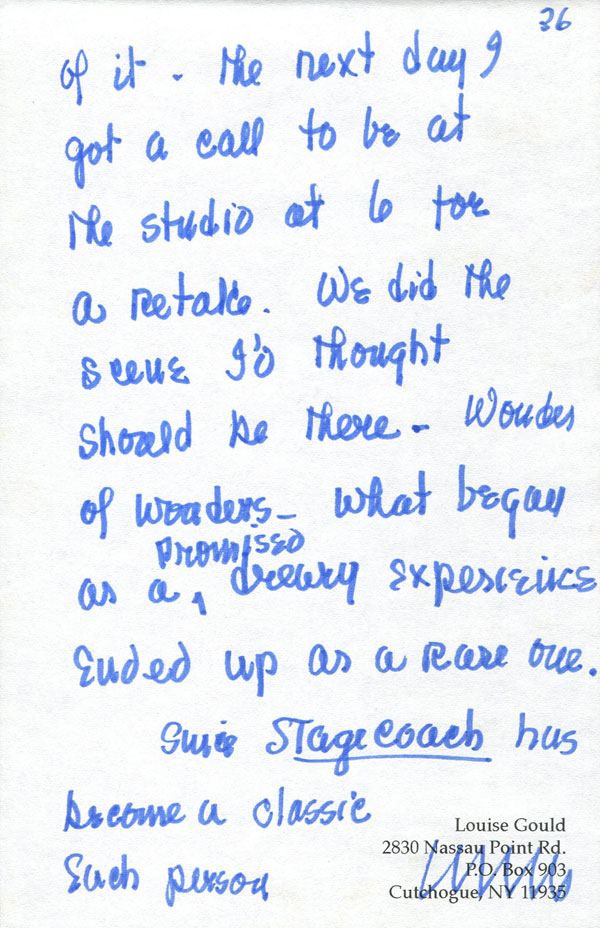 36
of it. The next day I
got a call to be at
the studio at 6 for
a retake. We did the
scene I'd thought
should be there - Wonder
of wonders - what began
promised
as a ^ dreary experience
Ended up as a rare one.
Since Stagecoach has
become a classic
Each person
Louise Gould
2830 Nassau Point Rd.
P.O. Box 903
Cutchogue, NY 11935